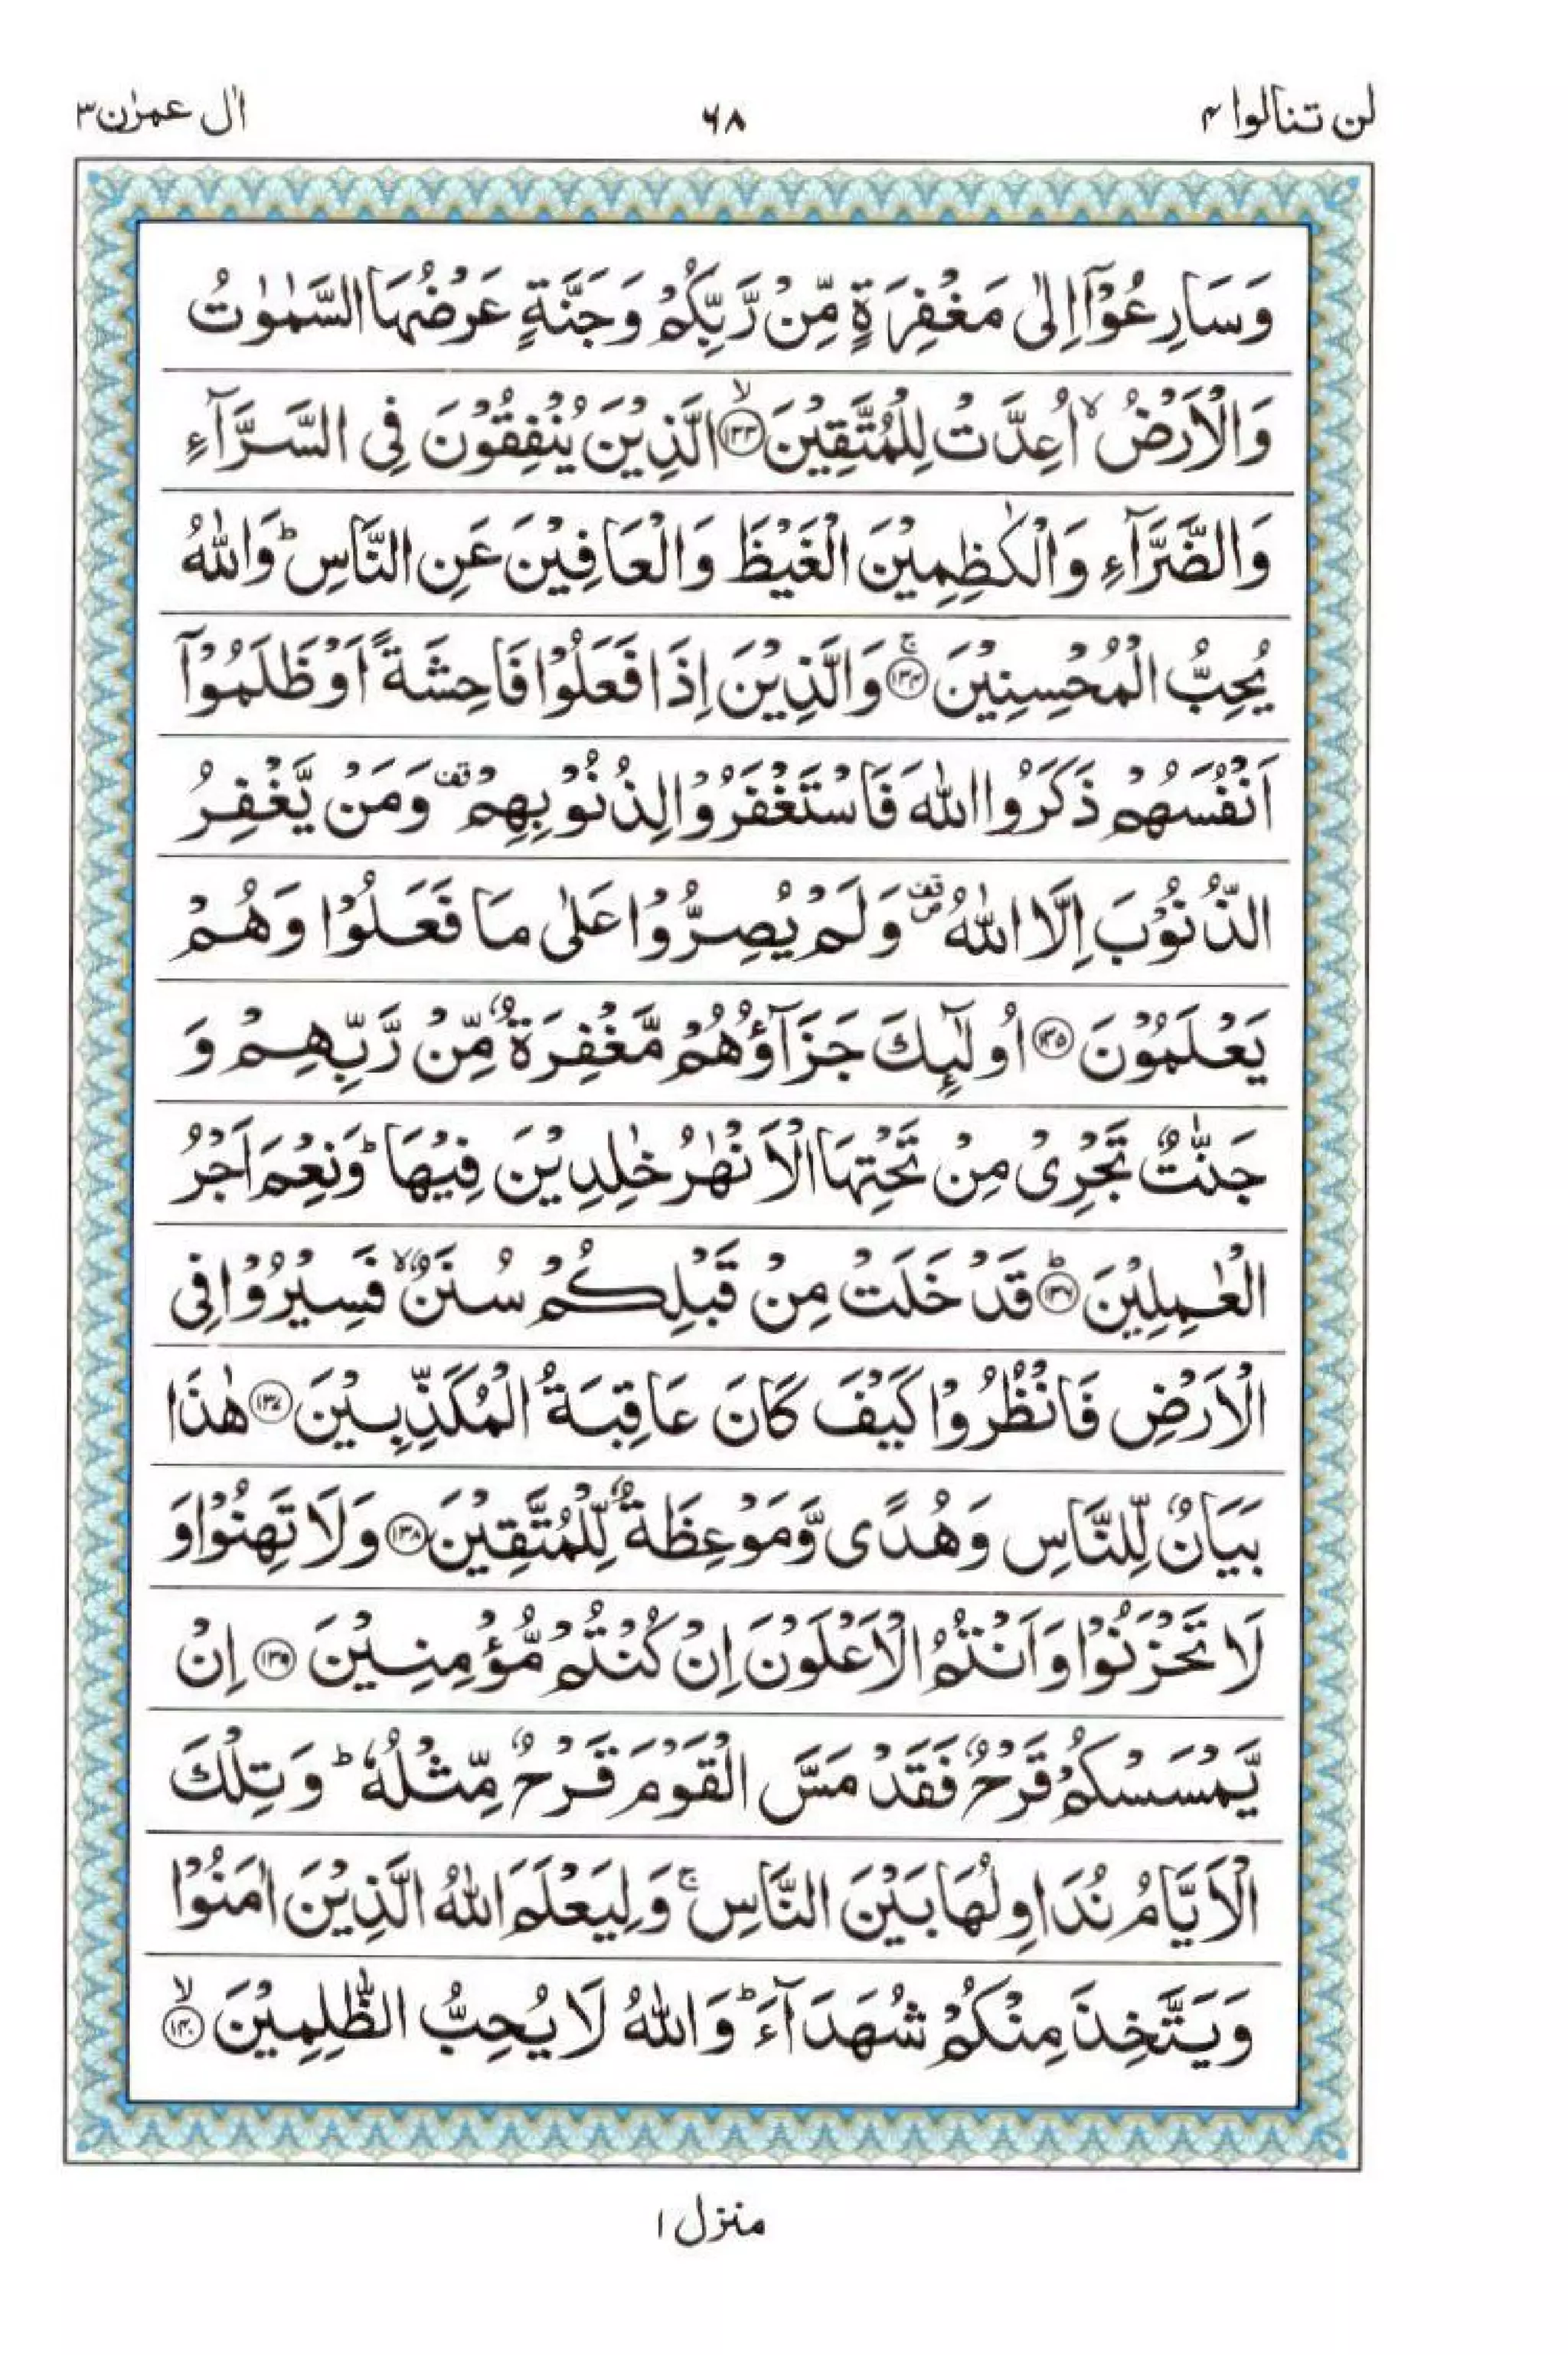 لن تنالوا ۴
۶۸
اٰل عمرٰن ۳
وَسَارِعُوْۤا اِلٰى مَغْفِرَةٍ مِّنْ رَّبِّكُمْ وَجَنَّةٍ عَرْضُهَا السَّمٰوٰتُ
وَالْاَرْضُ ۙ اُعِدَّتْ لِلْمُتَّقِيْنَ ۙ﴿۱۳۳﴾ الَّذِيْنَ يُنْفِقُوْنَ فِى السَّرَّآءِ
وَالضَّرَّآءِ وَالْكٰظِمِيْنَ الْغَيْظَ وَالْعَافِيْنَ عَنِ النَّاسِ ؕ وَاللّٰهُ
يُحِبُّ الْمُحْسِنِيْنَ ۚ﴿۱۳۴﴾ وَالَّذِيْنَ اِذَا فَعَلُوْا فَاحِشَةً اَوْ ظَلَمُوْۤا
اَنْفُسَهُمْ ذَكَرُوا اللّٰهَ فَاسْتَغْفَرُوْا لِذُنُوْبِهِمْ قف وَمَنْ يَّغْفِرُ
الذُّنُوْبَ اِلَّا اللّٰهُ قف ص وَلَمْ يُصِرُّوْا عَلٰى مَا فَعَلُوْا وَهُمْ
يَعْلَمُوْنَ ﴿۱۳۵﴾ اُولٰٓئِكَ جَزَآؤُهُمْ مَّغْفِرَةٌ مِّنْ رَّبِّهِمْ وَ
جَنّٰتٌ تَجْرِىْ مِنْ تَحْتِهَا الْاَنْهٰرُ خٰلِدِيْنَ فِيْهَا ؕ وَنِعْمَ اَجْرُ
الْعٰمِلِيْنَ ؕ﴿۱۳۶﴾ قَدْ خَلَتْ مِنْ قَبْلِكُمْ سُنَنٌ ۙ فَسِيْرُوْا فِى
الْاَرْضِ فَانْظُرُوْا كَيْفَ كَانَ عَاقِبَةُ الْمُكَذِّبِيْنَ ﴿۱۳۷﴾ هٰذَا
بَيَانٌ لِّلنَّاسِ وَهُدًى وَّمَوْعِظَةٌ لِّلْمُتَّقِيْنَ ﴿۱۳۸﴾ وَلَا تَهِنُوْا وَ
لَا تَحْزَنُوْا وَاَنْتُمُ الْاَعْلَوْنَ اِنْ كُنْتُمْ مُّؤْمِنِيْنَ ﴿۱۳۹﴾ اِنْ
يَّمْسَسْكُمْ قَرْحٌ فَقَدْ مَسَّ الْقَوْمَ قَرْحٌ مِّثْلُهٗ ؕ وَتِلْكَ
الْاَيَّامُ نُدَاوِلُهَا بَيْنَ النَّاسِ ۚ وَلِيَعْلَمَ اللّٰهُ الَّذِيْنَ اٰمَنُوْا
وَيَتَّخِذَ مِنْكُمْ شُهَدَآءَ ؕ وَاللّٰهُ لَا يُحِبُّ الظّٰلِمِيْنَ ۙ﴿۱۴۰﴾
منزل ۱